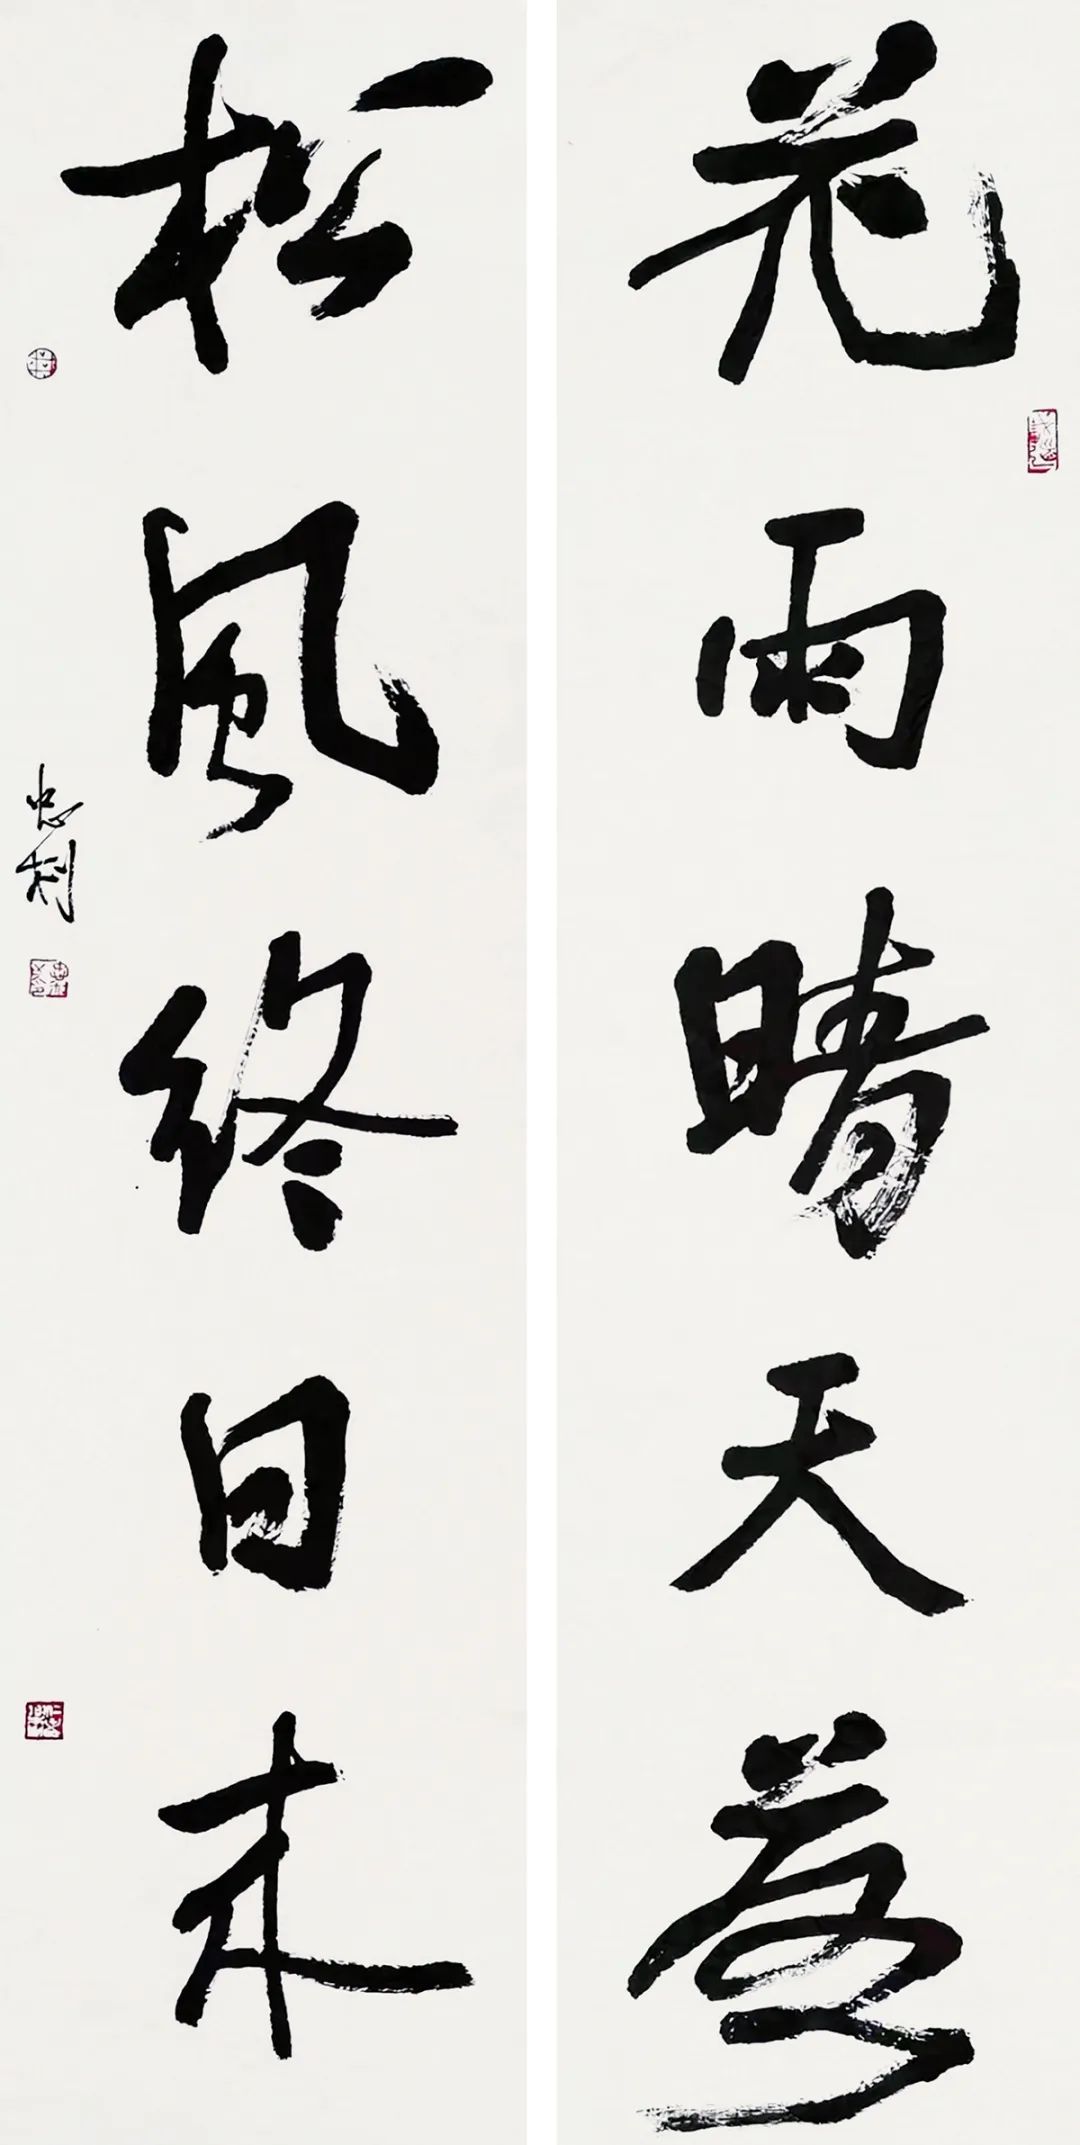 花雨晴天落
松風終日来
忠利